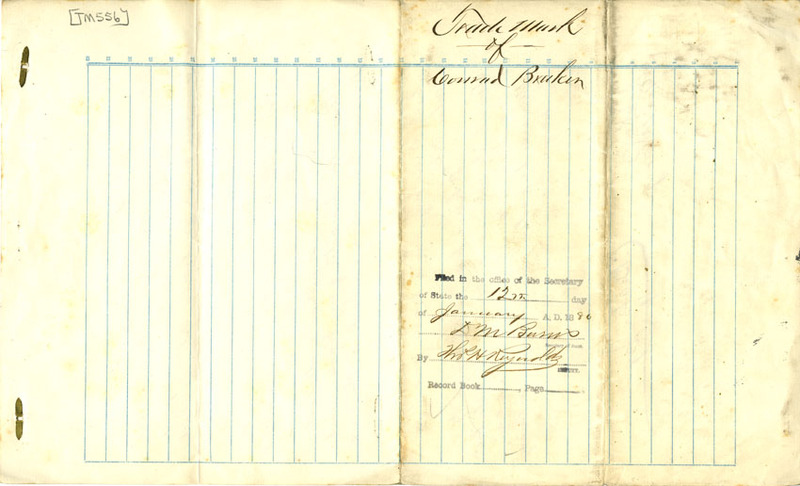 [TM556]
Trade Mark
of
Conrad Bruken
Filed in the office of the Secretary
of State the 12th day
of January A. D. 1880
D M Burns
By Thos H Reynolds
Record Book , Page .